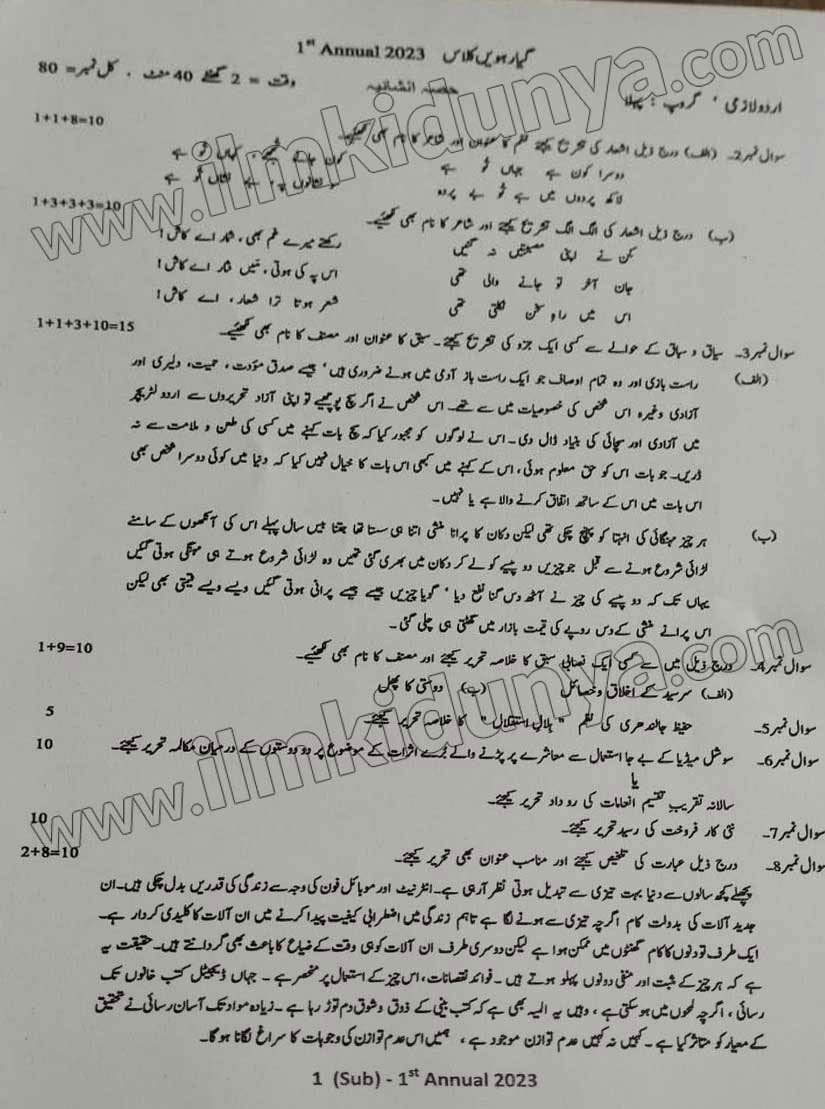 گیارہویں کلاس 1st Annual 2023
اردو لازمی ‘ گروپ : پہلا حصہ انشائیہ وقت = 2 گھنٹے 40 منٹ ، کل نمبر= 80
سوال نمبر2۔ (الف) درج ذیل اشعار کی تشریح کیجئے نظم کا عنوان اور شاعر کا نام بھی لکھیے۔ 1+1+8=10
دوسرا کون ہے جہاں تُو ہے کون جانے تجھے کہاں تُو ہے
لاکھ پردوں میں ہے تُو بے پردہ سو نشانوں پہ بے نشاں تُو ہے
(ب) درج ذیل اشعار کی الگ الگ تشریح کیجئے اور شاعر کا نام بھی لکھئے۔ 1+3+3+3=10
کن نے اپنی مصیبتیں نہ گنیں رکھتے میرے غم بھی، شمار اے کاش!
جان آخر تو جانے والی تھی اس پہ کی ہوتی، میں نثار اے کاش!
اس میں راہِ سخن نکلتی تھی شعر ہوتا ترا شعار، اے کاش!
سوال نمبر3۔ سیاق و سباق کے حوالے سے کسی ایک جزو کی تشریح کیجئے۔ سبق کا عنوان اور مصنف کا نام بھی لکھیے۔ 1+1+3+10=15
(الف) راست بازی اور وہ تمام اوصاف جو ایک راست باز آدمی میں ہونے ضروری ہیں‘ جیسے صدق مؤدت ، حمیت، دلیری اور
آزادی وغیرہ اس شخص کی خصوصیات میں سے تھے۔ اس شخص نے اگر سچ پوچھیے تو اپنی آزاد تحریروں سے اردو لٹریچر
میں آزادی اور سچائی کی بنیاد ڈال دی۔ اس نے لوگوں کو مجبور کیا کہ سچ بات کہنے میں کسی کی طعن و ملامت سے نہ
ڈریں۔ جو بات اس کو حق معلوم ہوئی، اس کے کہنے میں کبھی اس بات کا خیال نہیں کیا کہ دنیا میں کوئی دوسرا شخص بھی
اس بات میں اس کے ساتھ اتفاق کرنے والا ہے یا نہیں۔
(ب) ہر چیز مہنگائی کی انتہا کو پہنچ چکی تھی لیکن دکان کا پرانا منشی اتنا ہی سستا تھا جتنا بیس سال پہلے اس کی آنکھوں کے سامنے
لڑائی شروع ہونے سے قبل جو چیزیں دو پیسے کو لے کر دکان میں بھری گئی تھیں وہ لڑائی شروع ہوتے ہی مہنگی ہوتی گئیں
یہاں تک کہ دو پیسے کی چیز نے آٹھ دس گنا نفع دیا ‘ گویا چیزیں جیسے جیسے پرانی ہوتی گئیں ویسے ویسے قیمتی بھی لیکن
اس پرانے منشی کے دس روپے کی قیمت بازار میں گھٹتی ہی چلی گئی ۔
سوال نمبر4۔ درج ذیل میں سے کسی ایک نصابی سبق کا خلاصہ تحریر کیجئے اور مصنف کا نام بھی لکھئے۔ 1+9=10
(الف) سرسید کے اخلاق وخصائل (ب) دوستی کا پھل
سوال نمبر5۔ حفیظ جالندھری کی نظم "ہلالِ استقلال" کا خلاصہ تحریر کیجئے۔ 5
سوال نمبر6۔ سوشل میڈیا کے بے جا استعمال سے معاشرے پر پڑنے والے بُرے اثرات کے موضوع پر دو دوستوں کے درمیان مکالمہ تحریر کیجئے۔ 10
یا
سالانہ تقریبِ تقسیم انعامات کی روداد تحریر کیجئے۔
سوال نمبر7۔ نئی کار فروخت کی رسید تحریر کیجئے۔ 10
سوال نمبر8۔ درج ذیل عبارت کی تلخیص کیجئے اور مناسب عنوان بھی تحریر کیجئے۔ 2+8=10
پچھلے کچھ سالوں سے دنیا بہت تیزی سے تبدیل ہوتی نظر آ رہی ہے۔ انٹرنیٹ اور موبائل فون کی وجہ سے زندگی کی قدریں بدل چکی ہیں۔ ان
جدید آلات کی بدولت کام اگرچہ تیزی سے ہونے لگا ہے تاہم زندگی میں اضطرابی کیفیت پیدا کرنے میں ان آلات کا کلیدی کردار ہے۔
ایک طرف تو دنوں کا کام گھنٹوں میں ممکن ہوا ہے لیکن دوسری طرف ان آلات کو ہی وقت کے ضیاع کا باعث بھی گردانتے ہیں۔ حقیقت یہ
ہے کہ ہر چیز کے مثبت اور منفی دونوں پہلو ہوتے ہیں ۔ فوائد نقصانات ، اس چیز کے استعمال پر منحصر ہے ۔ جہاں ڈیجیٹل کتب خانوں تک
رسائی ، اگرچہ لمحوں میں ہو سکتی ہے ، وہیں یہ المیہ بھی ہے کہ کتب بینی کے ذوق و شوق دم توڑ رہا ہے ۔ زیادہ مواد تک آسان رسائی نے تحقیق
کے معیار کو متاثر کیا ہے ۔ کہیں نہ کہیں عدم توازن موجود ہے ، ہمیں اس عدم توازن کی وجوہات کا سراغ لگانا ہو گا۔
1 (Sub) - 1st Annual 2023
www.ilmkidunya.com
www.ilmkidunya.com
www.ilmkidunya.com